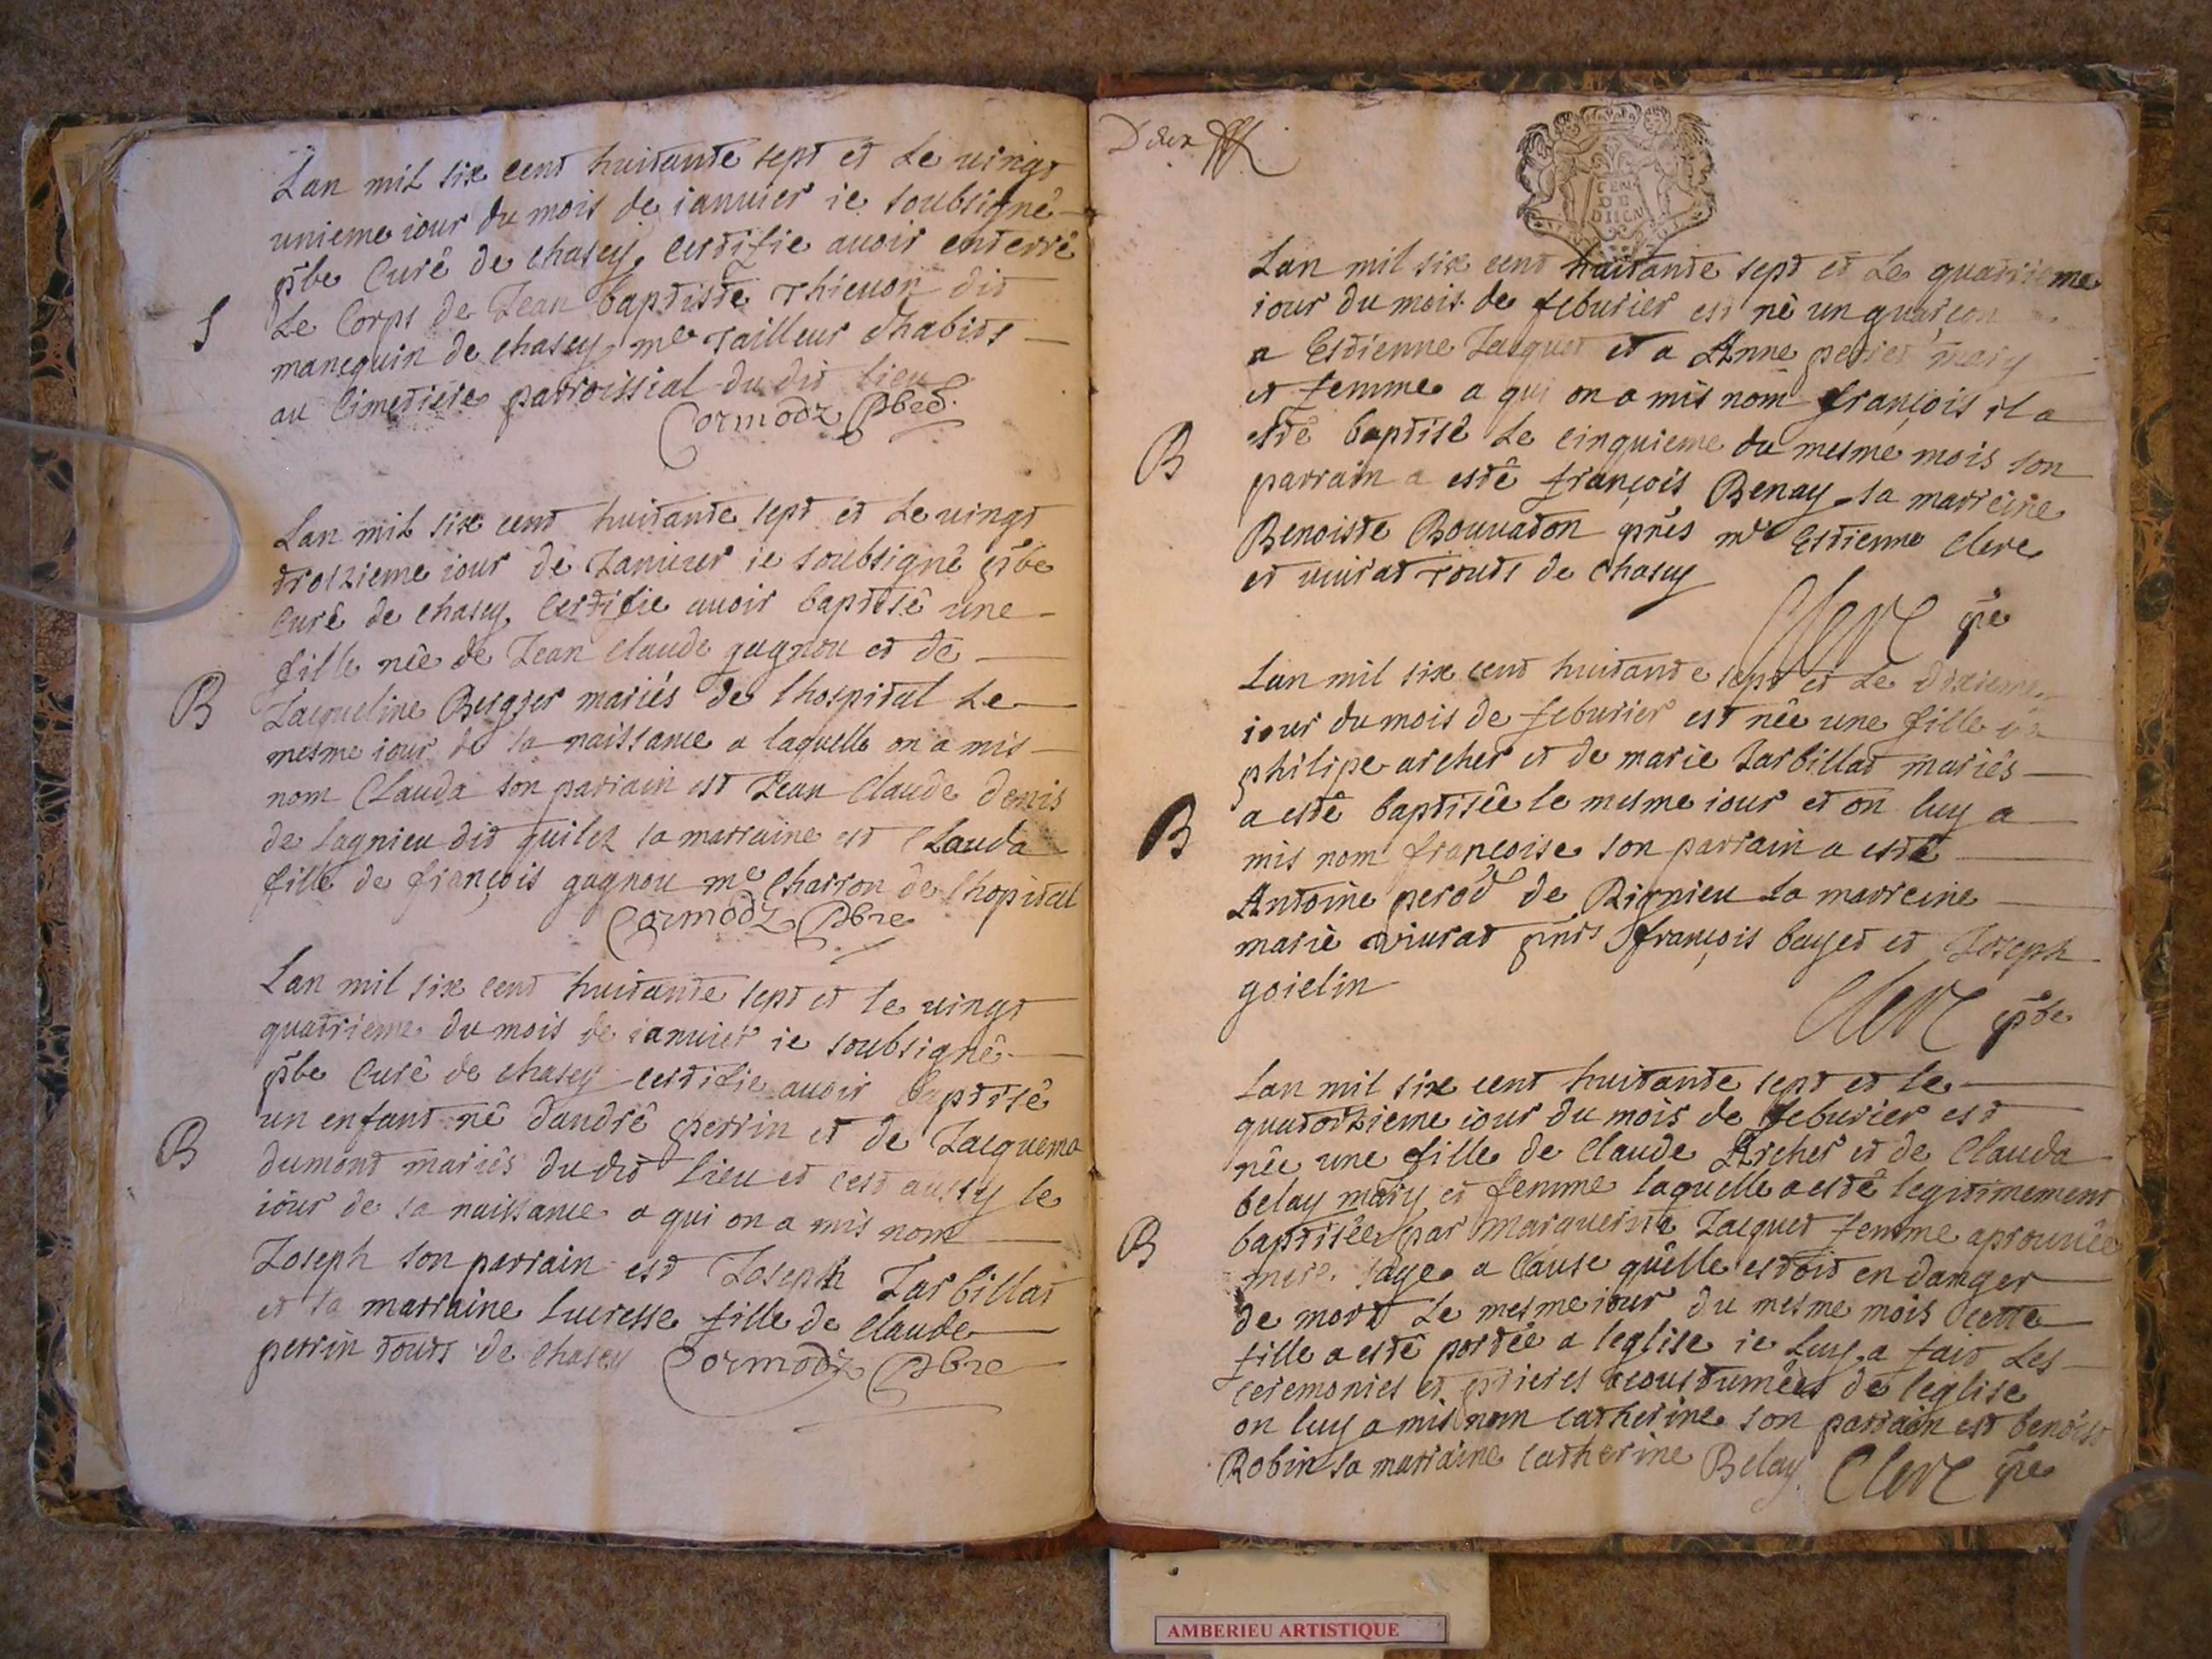 Lan mil six cent huitante sept et Le vingt
unieme iour du mois de ianuier ie soubsigné
pbe Curé de chasey Certifie auoir enterré
S
Le Corps de Jean baptiste Thieuon dit
manequin de chasey me Tailleur dhabits
au Cimetiere parroissial du dit lieu
Cormodz Pbre
Lan mil six cent huitante sept et Le vingt
troizieme iour de Januier ie soubsigné pbe
Curé de chasey Certifie auoir baptisé une
fille née de Jean Claude gagnou et de
B
Jacqueline Berger mariés de lhospital Le
mesme iour de sa naissance a laquelle on a mis
nom Clauda son parrain est Jean Claude denis
de Lagnieu dit quilez sa marraine est Clauda
fille de françois gagnou me Charron de Lhopital
Cormodz Pbre
Lan mil six cent huitante sept et le vingt
quatrieme du mois de ianuier ie soubsigné
pbe Curé de chasey certifie auoir baptisé
un enfant né dandré perrin et de Jacquema
B
dumont mariés du dit Lieu et cest aussy le
iour de sa naissance a qui on a mis nom
Joseph son parrain est Joseph Jarbillat
et sa marraine lucresse fille de Claude
perrin touts de chasey Cormodz Pbre
Deux
CEN
DE
DIION
Lan mil six cent huitante sept et Le quatrieme
iour du mois de feburier est né un guarçon
a Estienne Jacquet et a Anne perret mary
et femme a qui on a mis nom françois il a
esté baptisé Le cinquieme du mesme mois son
B
parrain a esté françois Benay sa marreine
Benoiste Bouuadon pnts me Estienne Clerc
et uiurat Touts de Chasey
Clerc pre
Lan mil six cent huitante sept et Le dixieme
iour du mois de feburier est née une fille de
philipe archer et de marie Jarbillat mariés
B
a esté baptisée le mesme iour et on luy a
mis nom françoise son parrain a esté
Antoine perod de Rignieu La marreine
marie viurat pnts françois bayet et Joseph
goielin
Clerc pbe
Lan mil six cent huitante sept et le
quatorzieme iour du mois de feburier est
née une fille de Claude Archer et de Clauda
belay mary et femme laquelle a esté legitimement
B
baptisée par marguerite Jacquet femme aprouuée
mere sage a Cause quelle estoit en danger
de mort Le mesme iour du mesme mois cette
fille a esté portée a leglise ie Luy a fait Les
ceremonies et prieres acoustumées de leglise
on luy a mis nom catherine son parrain est benoist
Robin sa marraine catherine Belay. Clerc pre
AMBERIEU ARTISTIQUE